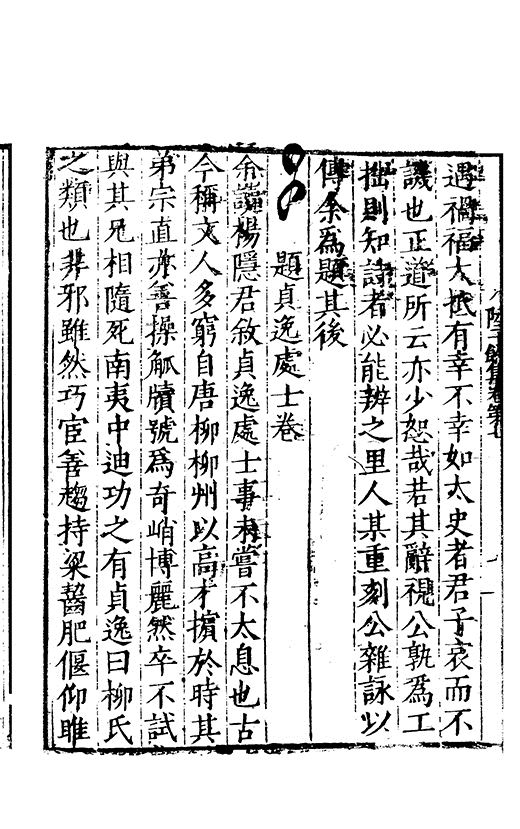 陸子餘集卷第七
遇禍福大抵有幸不幸如太史者君子哀而不
譏也正道所云亦少恕哉若其辭視公孰為工
拙則知詩者必能辨之里人某重刻公雜詠以
傳余為題其後
題貞逸處士卷
余讀楊隱君敘貞逸處士事未嘗不太息也古
今稱文人多窮自唐柳柳州以高才擯於時其
弟宗直亦善操觚牘號為奇峭博麗然卒不試
與其兄相隨死南夷中迪功之有貞逸曰柳氏
之類也非邪雖然巧宦善趨持粱齧肥偃仰雎